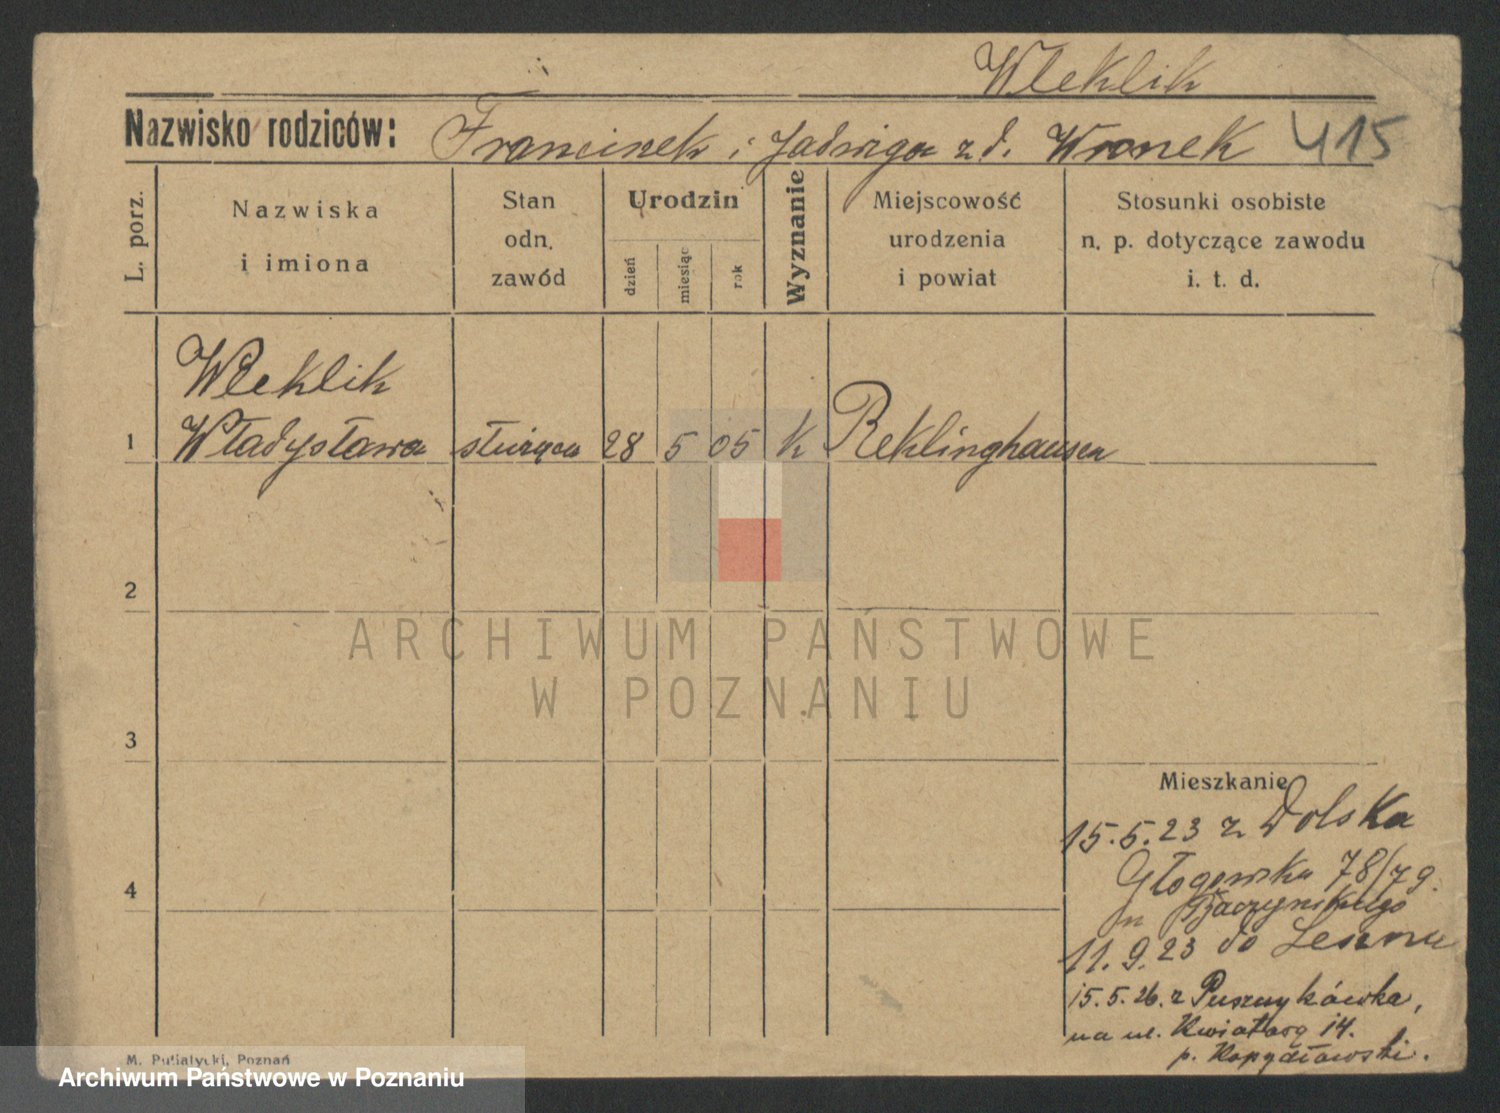 Wleklik
Nazwisko rodziców: Franciszek i Jadwiga z d. Wronek 415
L. porz.
Nazwiska
i imiona
Stan
odn.
zawód
Urodzin
dzień
miesiąc
rok
Wyznanie
Miejscowość
urodzenia
i powiat
Stosunki osobiste
n. p. dotyczące zawodu
i. t. d.
Wleklik
1 Władysława służąca 28 5 05 K Reklinghausen
2
ARCHIWUM PAŃSTWOWE
W POZNANIU
3
Mieszkanie
15.5.23 z Dolska
Głogowska 78/79.
4
11.9.23 do Leszna
15.5.26. z Puszczykówka,
na ul. Kwiatową 14.
p. Kopydłowski.
M. Putiatycki, Poznań
Archiwum Państwowe w Poznaniu